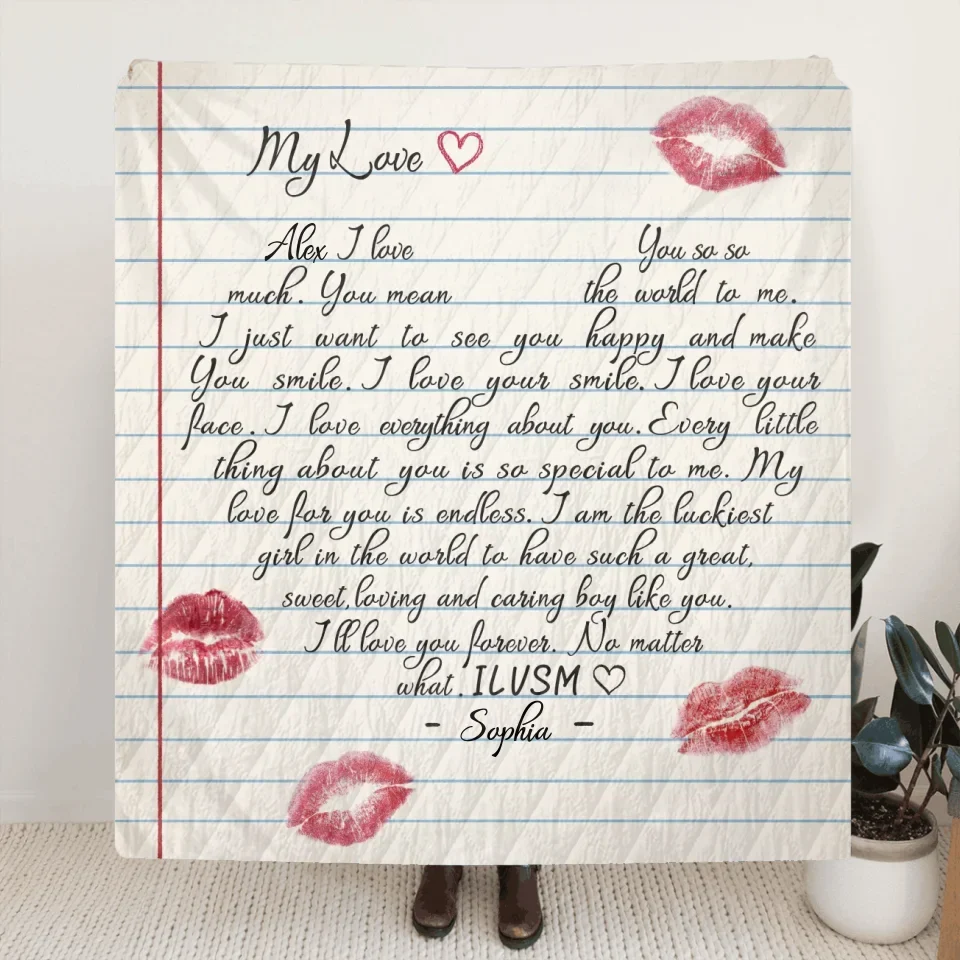 My Love
Alex I love You so so
much. You mean the world to me.
I just want to see you happy and make
You smile. I love your smile. I love your
face. I love everything about you. Every little
thing about you is so special to me. My
love for you is endless. I am the luckiest
girl in the world to have such a great,
sweet, loving and caring boy like you.
I'll love you forever. No matter
what. ILVSM ♡
- Sophia -